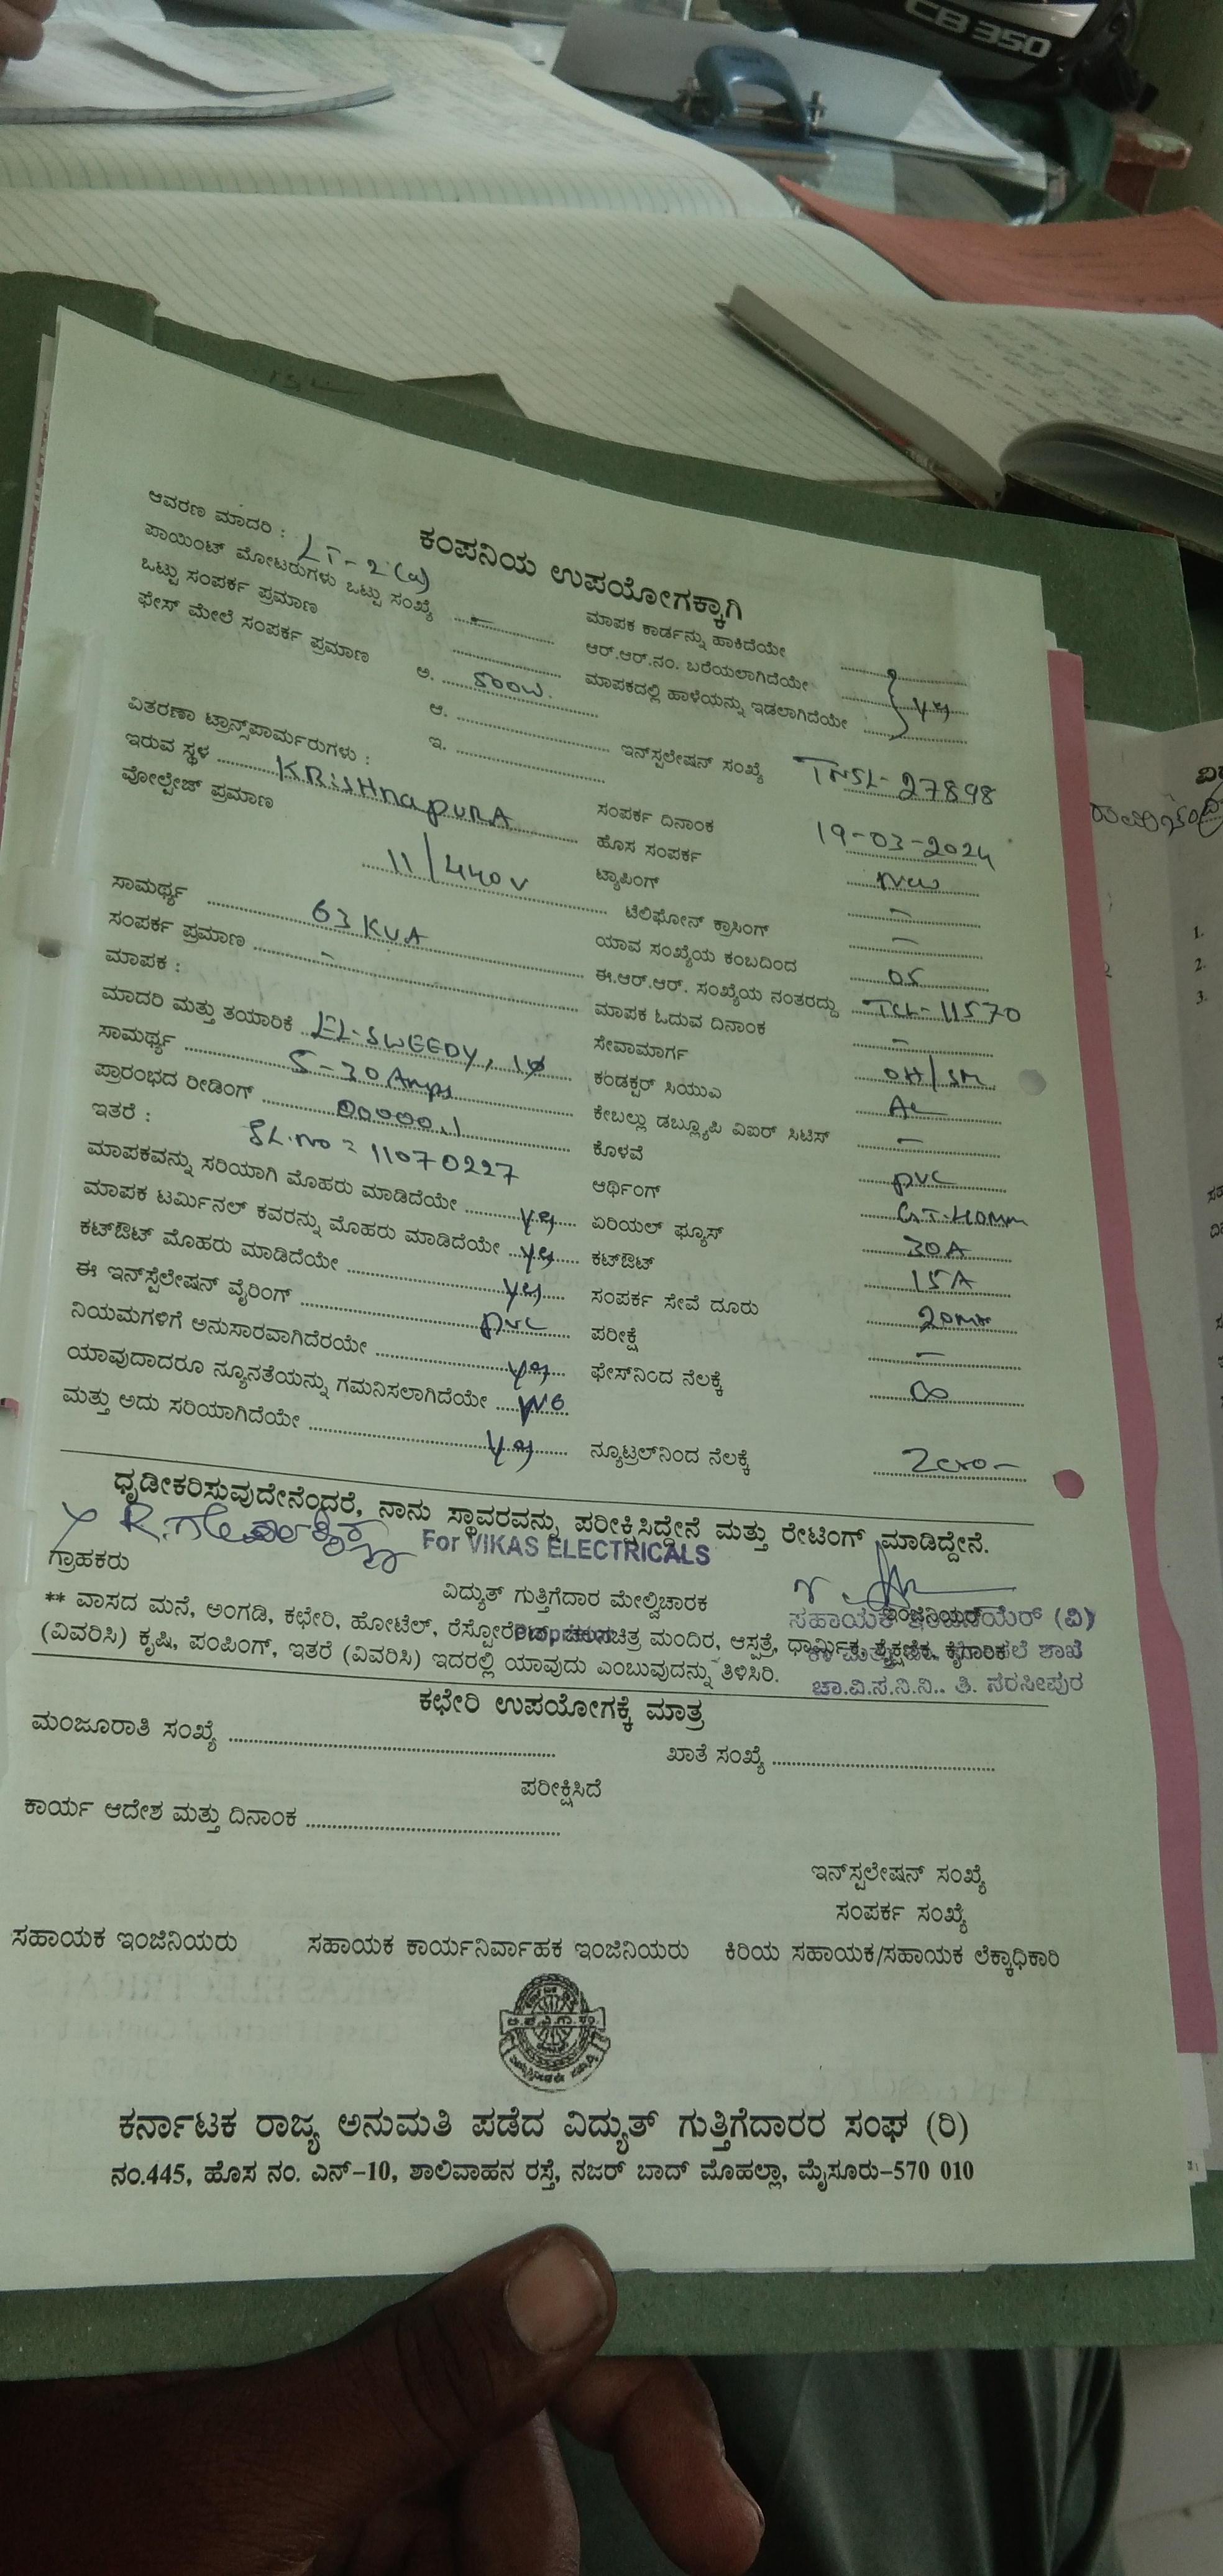 CB 350
ಕಂಪನಿಯ ಉಪಯೋಗಕ್ಕಾಗಿ
ಆವರಣ ಮಾದರಿ : LT-2(a)
ಪಾಯಿಂಟ್ ಮೋಟರುಗಳು ಒಟ್ಟು ಸಂಖ್ಯೆ –
ಒಟ್ಟು ಸಂಪರ್ಕ ಪ್ರಮಾಣ
ಫೇಸ್ ಮೇಲೆ ಸಂಪರ್ಕ ಪ್ರಮಾಣ ಅ. 500W.
ಆ.
ಇ.
ವಿತರಣಾ ಟ್ರಾನ್ಸ್‌ಪಾರ್ಮರುಗಳು :
ಇರುವ ಸ್ಥಳ KRISHnapURA
ವೋಲ್ಟೇಜ್ ಪ್ರಮಾಣ 11/440V
ಸಾಮರ್ಥ್ಯ 63 KVA
ಸಂಪರ್ಕ ಪ್ರಮಾಣ –
ಮಾಪಕ :
ಮಾದರಿ ಮತ್ತು ತಯಾರಿಕೆ EL-SWEEDY, 1φ
ಸಾಮರ್ಥ್ಯ 5-30 Amps
ಪ್ರಾರಂಭದ ರೀಡಿಂಗ್ 00000.1
ಇತರೆ : SL.no = 11070227
ಮಾಪಕವನ್ನು ಸರಿಯಾಗಿ ಮೊಹರು ಮಾಡಿದೆಯೇ yes
ಮಾಪಕ ಟರ್ಮಿನಲ್ ಕವರನ್ನು ಮೊಹರು ಮಾಡಿದೆಯೇ yes
ಕಟ್‌ಔಟ್ ಮೊಹರು ಮಾಡಿದೆಯೇ yes
ಈ ಇನ್‌ಸ್ಟೆಲೇಷನ್ ವೈರಿಂಗ್ pvc
ನಿಯಮಗಳಿಗೆ ಅನುಸಾರವಾಗಿದೆರಯೇ yes
ಯಾವುದಾದರೂ ನ್ಯೂನತೆಯನ್ನು ಗಮನಿಸಲಾಗಿದೆಯೇ NO
ಮತ್ತು ಅದು ಸರಿಯಾಗಿದೆಯೇ yes
ಮಾಪಕ ಕಾರ್ಡನ್ನು ಹಾಕಿದೆಯೇ
ಆರ್.ಆರ್.ನಂ. ಬರೆಯಲಾಗಿದೆಯೇ yes
ಮಾಪಕದಲ್ಲಿ ಹಾಳೆಯನ್ನು ಇಡಲಾಗಿದೆಯೇ
ಇನ್‌ಸ್ಟಲೇಷನ್ ಸಂಖ್ಯೆ TNSL-27898
ಸಂಪರ್ಕ ದಿನಾಂಕ 19-03-2024
ಹೊಸ ಸಂಪರ್ಕ New
ಟ್ಯಾಪಿಂಗ್ –
ಟೆಲಿಫೋನ್ ಕ್ರಾಸಿಂಗ್ –
ಯಾವ ಸಂಖ್ಯೆಯ ಕಂಬದಿಂದ 05
ಈ.ಆರ್.ಆರ್. ಸಂಖ್ಯೆಯ ನಂತರದ್ದು TCL-11570
ಮಾಪಕ ಓದುವ ದಿನಾಂಕ –
ಸೇವಾಮಾರ್ಗ OH/SM
ಕಂಡಕ್ಟರ್ ಸಿಯುಎ AL
ಕೇಬಲ್ಲು ಡಬ್ಲ್ಯೂಪಿ ವಿಐರ್ ಸಿಟಿಸ್ –
ಕೊಳವೆ pvc
ಆರ್ಥಿಂಗ್ G.I.40mm
ಏರಿಯಲ್ ಫ್ಯೂಸ್ 30A
ಕಟ್‌ಔಟ್ 15A
ಸಂಪರ್ಕ ಸೇವೆ ದೂರು 20Mtr
ಪರೀಕ್ಷೆ –
ಫೇಸ್‌ನಿಂದ ನೆಲಕ್ಕೆ ∞
ನ್ಯೂಟ್ರಲ್‌ನಿಂದ ನೆಲಕ್ಕೆ Zero-
ಧೃಡೀಕರಿಸುವುದೇನೆಂದರೆ, ನಾನು ಸ್ಥಾವರವನ್ನು ಪರೀಕ್ಷಿಸಿದ್ದೇನೆ ಮತ್ತು ರೇಟಿಂಗ್ ಮಾಡಿದ್ದೇನೆ.
For VIKAS ELECTRICALS
ಗ್ರಾಹಕರು
ವಿದ್ಯುತ್ ಗುತ್ತಿಗೆದಾರ ಮೇಲ್ವಿಚಾರಕ
ಇಂಜಿನಿಯರ್
ಸಹಾಯಕ ಇಂಜಿನಿಯರ್ (ವಿ)
ಶಾಖೆ
ಚಾ.ವಿ.ಸ.ನಿ.ನಿ.. ತಿ. ನರಸೀಪುರ
** ವಾಸದ ಮನೆ, ಅಂಗಡಿ, ಕಛೇರಿ, ಹೋಟೆಲ್, ರೆಸ್ಟೋರೆಂಟ್, ಚಲನಚಿತ್ರ ಮಂದಿರ, ಆಸ್ಪತ್ರೆ, ಧಾರ್ಮಿಕ, ಶೈಕ್ಷಣಿಕ, ಕೈಗಾರಿಕ
(ವಿವರಿಸಿ) ಕೃಷಿ, ಪಂಪಿಂಗ್, ಇತರೆ (ವಿವರಿಸಿ) ಇದರಲ್ಲಿ ಯಾವುದು ಎಂಬುವುದನ್ನು ತಿಳಿಸಿರಿ.
ಕಛೇರಿ ಉಪಯೋಗಕ್ಕೆ ಮಾತ್ರ
ಮಂಜೂರಾತಿ ಸಂಖ್ಯೆ
ಖಾತೆ ಸಂಖ್ಯೆ
ಪರೀಕ್ಷಿಸಿದೆ
ಕಾರ್ಯ ಆದೇಶ ಮತ್ತು ದಿನಾಂಕ
ಇನ್‌ಸ್ಟಲೇಷನ್ ಸಂಖ್ಯೆ
ಸಂಪರ್ಕ ಸಂಖ್ಯೆ
ಸಹಾಯಕ ಇಂಜಿನಿಯರು ಸಹಾಯಕ ಕಾರ್ಯನಿರ್ವಾಹಕ ಇಂಜಿನಿಯರು ಕಿರಿಯ ಸಹಾಯಕ/ಸಹಾಯಕ ಲೆಕ್ಕಾಧಿಕಾರಿ
ಕರ್ನಾಟಕ ರಾಜ್ಯ ಅನುಮತಿ ಪಡೆದ ವಿದ್ಯುತ್ ಗುತ್ತಿಗೆದಾರರ ಸಂಘ (ರಿ)
ನಂ.445, ಹೊಸ ನಂ. ಎನ್-10, ಶಾಲಿವಾಹನ ರಸ್ತೆ, ನಜರ್ ಬಾದ್ ಮೊಹಲ್ಲಾ, ಮೈಸೂರು-570 010
1.
2.
3.